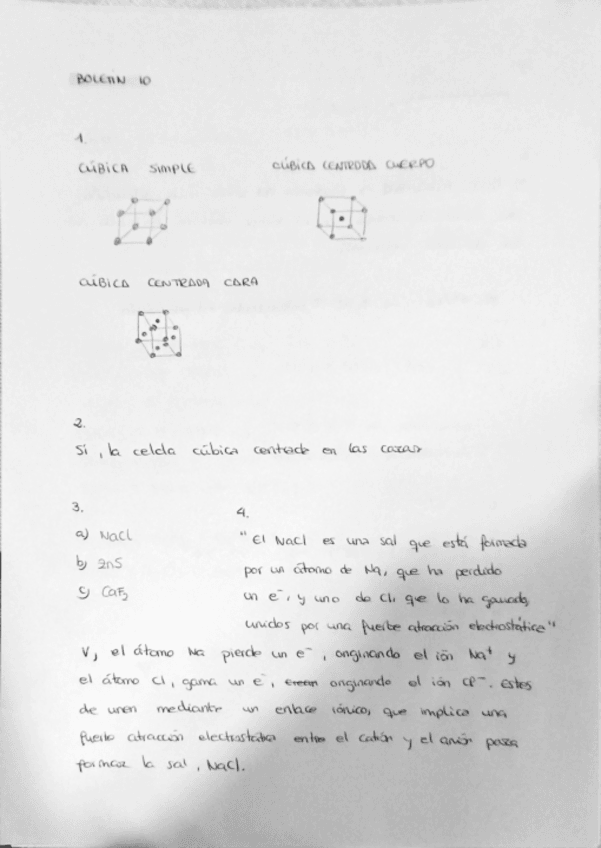 BOLETÍN 10
1.
CÚBICA SIMPLE
CÚBICA CENTRADA CUERPO
CÚBICA CENTRADA CARA
2.
Si, la celda cúbica centrada en las caras
3.
a) NaCl
b) ZnS
c) CaF2
4.
"El NaCl es una sal que está formada
por un átomo de Na, que ha perdido
un e-, y uno de Cl, que lo ha ganado,
unidos por una fuerte atracción electrostática"
V, el átomo Na pierde un e-, originando el ión Na+ y
el átomo Cl, gana un e-, originando el ión Cl-. Estes
de unen mediante un enlace iónico, que implica una
fuerte atracción electrostática entre el catión y el anión para
formar la sal, NaCl.